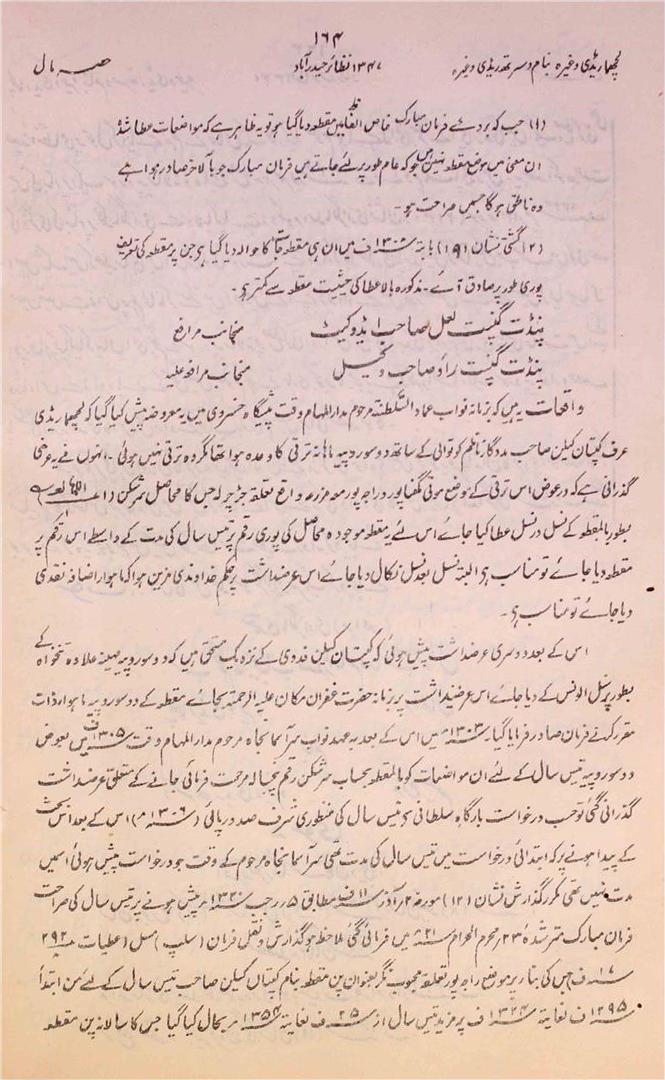 ۱۶۴
لچھماریڈی وغیرہ بنام دسرتھ ریڈی وغیرہ ۱۳۴۷ نظائر حیدرآباد صہ مال
(۱) جب کہ بروئے فرمان مبارک خاص الفاظ میں مقطعہ دیا گیا ہو تو یہ ظاہر ہے کہ مواضعات عطا شدہ
ان معنی میں موضع مقطعہ نہیں ہیں جو کہ عام طور پر لئے جاتے ہیں فرمان مبارک جو بالآخر صادر ہوا ہے
وہ ناطق ہوگا جسمیں صراحت ہو۔
(۲) گشتی نشان (۱۹) بابتہ ۱۳۰۲ ف میں ان ہی مقطعہ جات کا حوالہ دیا گیا ہے جن پر مقطعہ کی تعریف
پوری طور پر صادق آئے۔ مذکورہ بالا عطا کی حیثیت مقطعہ سے کمتر ہے۔
پنڈت گنپت لعل صاحب ایڈوکیٹ منجانب مرافع
پنڈت گنپت راؤ صاحب وکیل منجانب مرافعہ علیہ
واقعات یہ ہیں کہ بزمانہ نواب عماد السلطنت مرحوم مدار المہام وقت پیشگاہ خسروی میں یہ معروضہ پیش کیا گیا کہ لچھما ریڈی
عرف کپتان کیلن صاحب مددگار ناظم کوتوالی کے ساتھ دو سو روپیہ ماہانہ ترقی کا وعدہ ہوا تھا مگر وہ ترقی نہیں ہوئی۔ انہوں نے یہ عرضی
گذرانی ہے کہ در عوض اس ترقی کے موضع موتی گھنا پور و راجہ پور معہ مزرعہ واقع تعلقہ جڑچرلہ جس کا محاصل سر شکن
بطور بالمقطعہ کے نسل در نسل عطا کیا جائے اس لئے یہ مقطعہ موجودہ محاصل کی پوری رقم پر تیس سال کی مدت کے واسطے اس رقم پر
مقطعہ دیا جائے تو مناسب ہے البتہ نسل بعد نسل نکال دیا جائے اس عرضداشت پر حکم خداوندی مزین ہوا کہ ماہوار اضافہ نقدی
دیا جائے تو مناسب ہے۔
اس کے بعد دوسری عرضداشت پیش ہوئی کہ کپتان کیلن فدوی کے نزدیک مستحق ہیں کہ دو سو روپیہ مہینہ علاوہ تنخواہ کے
بطور پرسنل الونس کے دیا جائے اس عرضداشت پر بزمانہ حضرت غفران مکان علیہ الرحمۃ بجائے مقطعہ کے دو سو روپیہ ماہوار ذات
مقرر کرنے فرمان صادر فرمایا گیا ۱۳۰۳ میں اس کے بعد بہ عہد نواب سر آسمانجاہ مرحوم مدار المہام وقت ۱۳۰۵ ف میں بعوض
دو سو روپیہ تیس سال کے لئے ان مواضعات کو بالمقطعہ بحساب سر شکن رقم پچسالہ مرحمت فرمائی جانے کے متعلق عرضداشت
گذرانی گئی تو حسب درخواست بارگاہ سلطانی سے تیس سال کی منظوری شرف صدور پائی (۱۳۰۶) اس کے بعد اس بحث
کے پیدا ہونے پر کہ ابتدائی درخواست میں تیس سال کی مدت تھی سر آسمانجاہ مرحوم کے وقت جو درخواست پیش ہوئی اسمیں
مدت نہیں تھی مکرر گذارش نشان (۱۲) مورخہ ۲ آذر ۱۱ ف مطابق ۵ رجب ۱۳۲۰ پیش ہونے پر تیس سال کی صراحت
فرمان مبارک مترشدہ ۲۳ محرم الحرام ۲۱ میں فرمائی گئی ملاحظہ ہو گذارش و نقل فرمان (سلپ) مسل اعطیات ۲۹۲
۱۷ ف جس کی بناء پر موضع راجہ پور تعلقہ محبوب نگر بعنوان پن مقطعہ بنام کپتان کیلن صاحب تیس سال کے لئے من ابتدا
۱۲۹۵ ف لغایۃ ۱۳۲۴ ف پر مزید تیس سال از ۲۵ ف لغایۃ ۱۳۵۴ بحال کیا گیا جس کا سالانہ پن مقطعہ